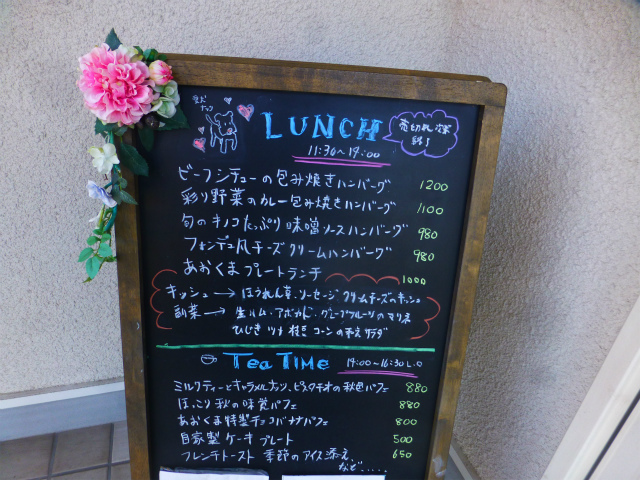 愛犬
ナッツ
LUNCH
11:30～14:00
売切れ次第
終了
ビーフシチューの包み焼きハンバーグ 1200
彩り野菜のカレー包み焼きハンバーグ 1100
旬のキノコたっぷり味噌ソースハンバーグ 980
フォンデュ風チーズクリームハンバーグ 980
あおくまプレートランチ 1000
キッシュ → ほうれん草、ソーセージ クリームチーズのキッシュ
副菜 → 生ハム・アボカド・グレープフルーツのマリネ
ひじき ツナ 枝豆 コーンの和え サラダ
Tea TIME 14:00～16:30 L.O
ミルクティーとキャラメルナッツ、ピスタチオの秋色パフェ 880
ほっこり秋の味覚パフェ 880
あおくま特製チョコバナナパフェ 800
自家製ケーキプレート 500
フレンチトースト 季節のアイス添え 650
など.....